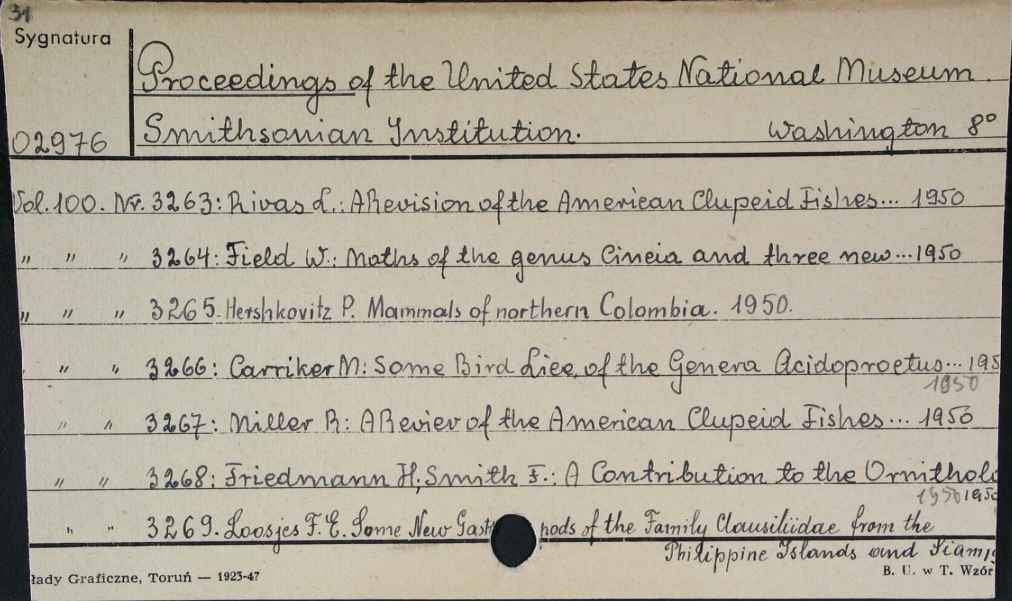 31
Sygnatura
Proceedings of the United States National Museum.
02976
Smithsonian Institution. Washington 8°
Vol. 100. Nr. 3263: Rivas L.: A Revision of the American Clupeid Fishes... 1950
" " " 3264: Field W.: Moths of the genus Cincia and three new...1950
" " " 3265. Hershkovitz P. Mammals of northern Colombia. 1950.
" " 3266: Carriker M: Some Bird Lice, of the Genera Acidoproctus...195
1950
" " 3267: Miller R: A Reviev of the American Clupeid Fishes... 1950
" " 3268: Friedmann H, Smith F.: A Contribution to the Ornitholo
1950 1950
" " 3269. Loosjes F.E. Some New Gast pods of the Family Clausiliidae from the
Philippine Islands and Siam, 9
łady Graficzne, Toruń — 1923-47
B. U. w T. Wzór